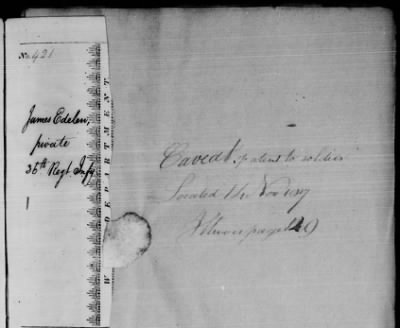 No. 421
James Edelen,
private
36th Regt. Infy
WAR DEPARTMENT
Caveat. patent to soldier
Located Nov 1817
Illinois page